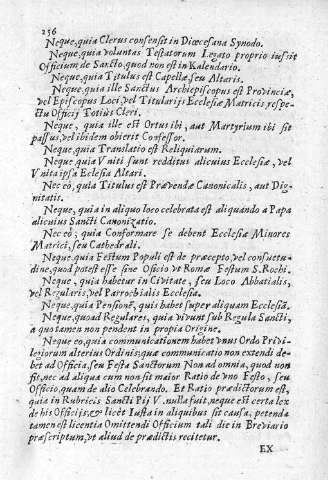 256
Neque, quia Clerus consensit in Diœcesana Synodo.
Neque, quia voluntas Testatorum Legato proprio iussit
Officium de Sancto, quod non est in Kalendario.
Neque, quia Titulus est Capellæ, seu Altaris.
Neque, quia ille Sanctus Archiepiscopus est Provinciæ,
vel Episcopus Loci, vel Titularij Ecclesiæ Matricis respe-
ctu Officij Totius Cleri.
Neque, quia ille est Ortus ibi, aut Martyrium ibi sit
passus, vel ibidem obierit Confessor.
Neque, quia Translatio est Reliquiarum.
Neque, quia Vniti sunt redditus alicuius Ecclesiæ, vel
Vnita ipsa Eclesia Altari.
Nec eò, quia Titulus est Præuendæ Canonicalis, aut Dig-
nitatis.
Neque, quia in aliquo loco celebrata est aliquando a Papa
alicuius Sancti Canonizatio.
Nec eò, quia Conformare se debent Ecclesiæ Minores
Matrici, seu Cathedrali.
Neque, quia Festum Populi est de præcepto, vel consuetu-
dine, quod potest esse sine Oficio vt Romæ Festum S. Rochi.
Neque, quia habetur in Civitate, seu Loco Abbatialis,
vel Regularis, vel Parrochialis Ecclesia.
Neque, quia Pensionẽ, quis habet super aliquam Ecclesiã.
Neque, quoad Regulares, quia vivunt sub Regula Sancti,
a quo tamen non pendent in propia Origine.
Neque eo, quia communicationem habet vnus Ordo Privi-
legiorum alterius Ordinis; quæ communicatio non extendi de-
bet ad Oficia, seu Festa Sanctorum Non ad omnia, quod non
fit, nec ad aliqua cum non sit maior Ratio de vno Festo, seu
Officio, quam de alio Celebrando. Et Ratio prædictorum est,
quia in Rubricis Sancti Pij V. nulla fuit, neque est certa lex
de his Officijs, & licet Iusta in aliquibus sit causa, petenda
tamen est licentia Omittendi Officium tali die in Breviario
præscriptum, vt aliud de prædictis recitetur.
EX